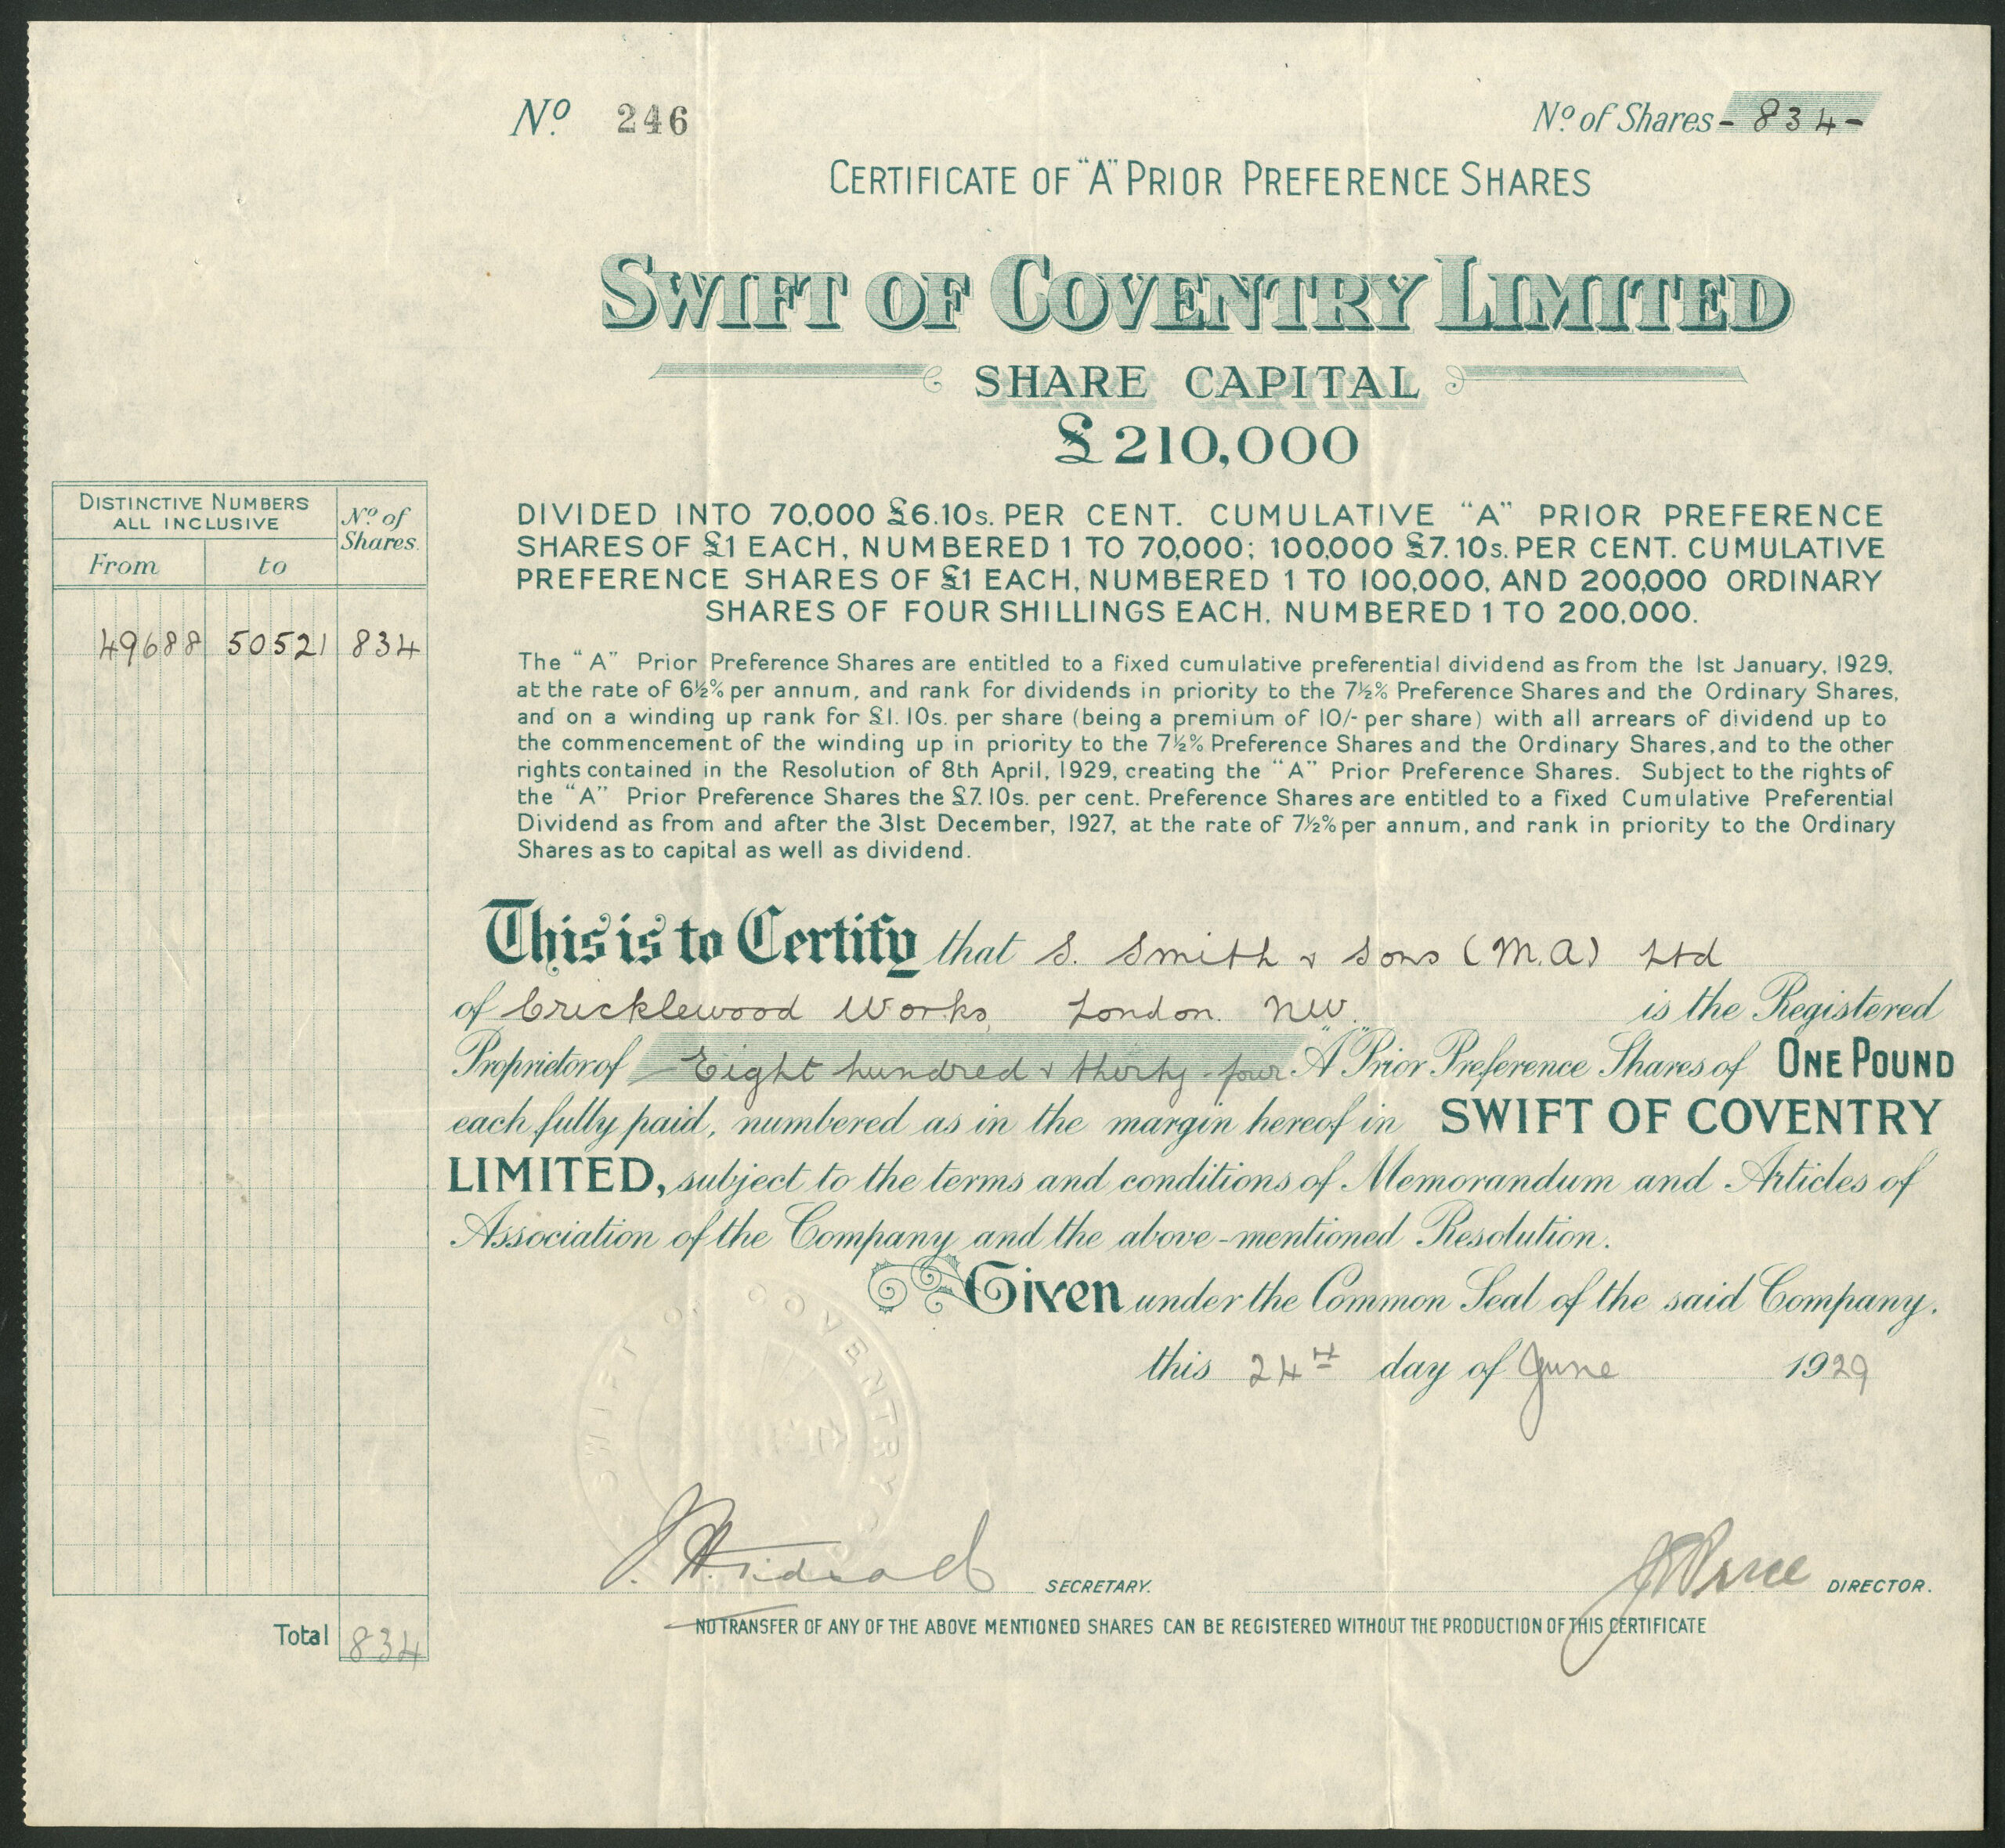 Nº. 246
Nº of Shares - 834 -
CERTIFICATE OF "A" PRIOR PREFERENCE SHARES
SWIFT OF COVENTRY LIMITED
SHARE CAPITAL
£210,000
DISTINCTIVE NUMBERS ALL INCLUSIVE
Nº of Shares.
From to
49688 50521 834
DIVIDED INTO 70,000 £6.10s. PER CENT. CUMULATIVE "A" PRIOR PREFERENCE
SHARES OF £1 EACH, NUMBERED 1 TO 70,000; 100,000 £7.10s. PER CENT. CUMULATIVE
PREFERENCE SHARES OF £1 EACH, NUMBERED 1 TO 100,000, AND 200,000 ORDINARY
SHARES OF FOUR SHILLINGS EACH, NUMBERED 1 TO 200,000.
The "A" Prior Preference Shares are entitled to a fixed cumulative preferential dividend as from the 1st January, 1929,
at the rate of 6½% per annum, and rank for dividends in priority to the 7½% Preference Shares and the Ordinary Shares,
and on a winding up rank for £1.10s. per share (being a premium of 10/- per share) with all arrears of dividend up to
the commencement of the winding up in priority to the 7½% Preference Shares and the Ordinary Shares, and to the other
rights contained in the Resolution of 8th April, 1929, creating the "A" Prior Preference Shares. Subject to the rights of
the "A" Prior Preference Shares the £7.10s. per cent. Preference Shares are entitled to a fixed Cumulative Preferential
Dividend as from and after the 31st December, 1927, at the rate of 7½% per annum, and rank in priority to the Ordinary
Shares as to capital as well as dividend.
This is to Certify that S. Smith & Sons (M.A) Ltd
of Cricklewood Works, London. NW. is the Registered
Proprietor of Eight hundred & thirty-four "A" Prior Preference Shares of ONE POUND
each fully paid, numbered as in the margin hereof in SWIFT OF COVENTRY
LIMITED, subject to the terms and conditions of Memorandum and Articles of
Association of the Company and the above-mentioned Resolution.
Given under the Common Seal of the said Company.
this 24TH day of June 1929
SWIFT OF COVENTRY
SECRETARY.
DIRECTOR.
NO TRANSFER OF ANY OF THE ABOVE MENTIONED SHARES CAN BE REGISTERED WITHOUT THE PRODUCTION OF THIS CERTIFICATE
Total 834